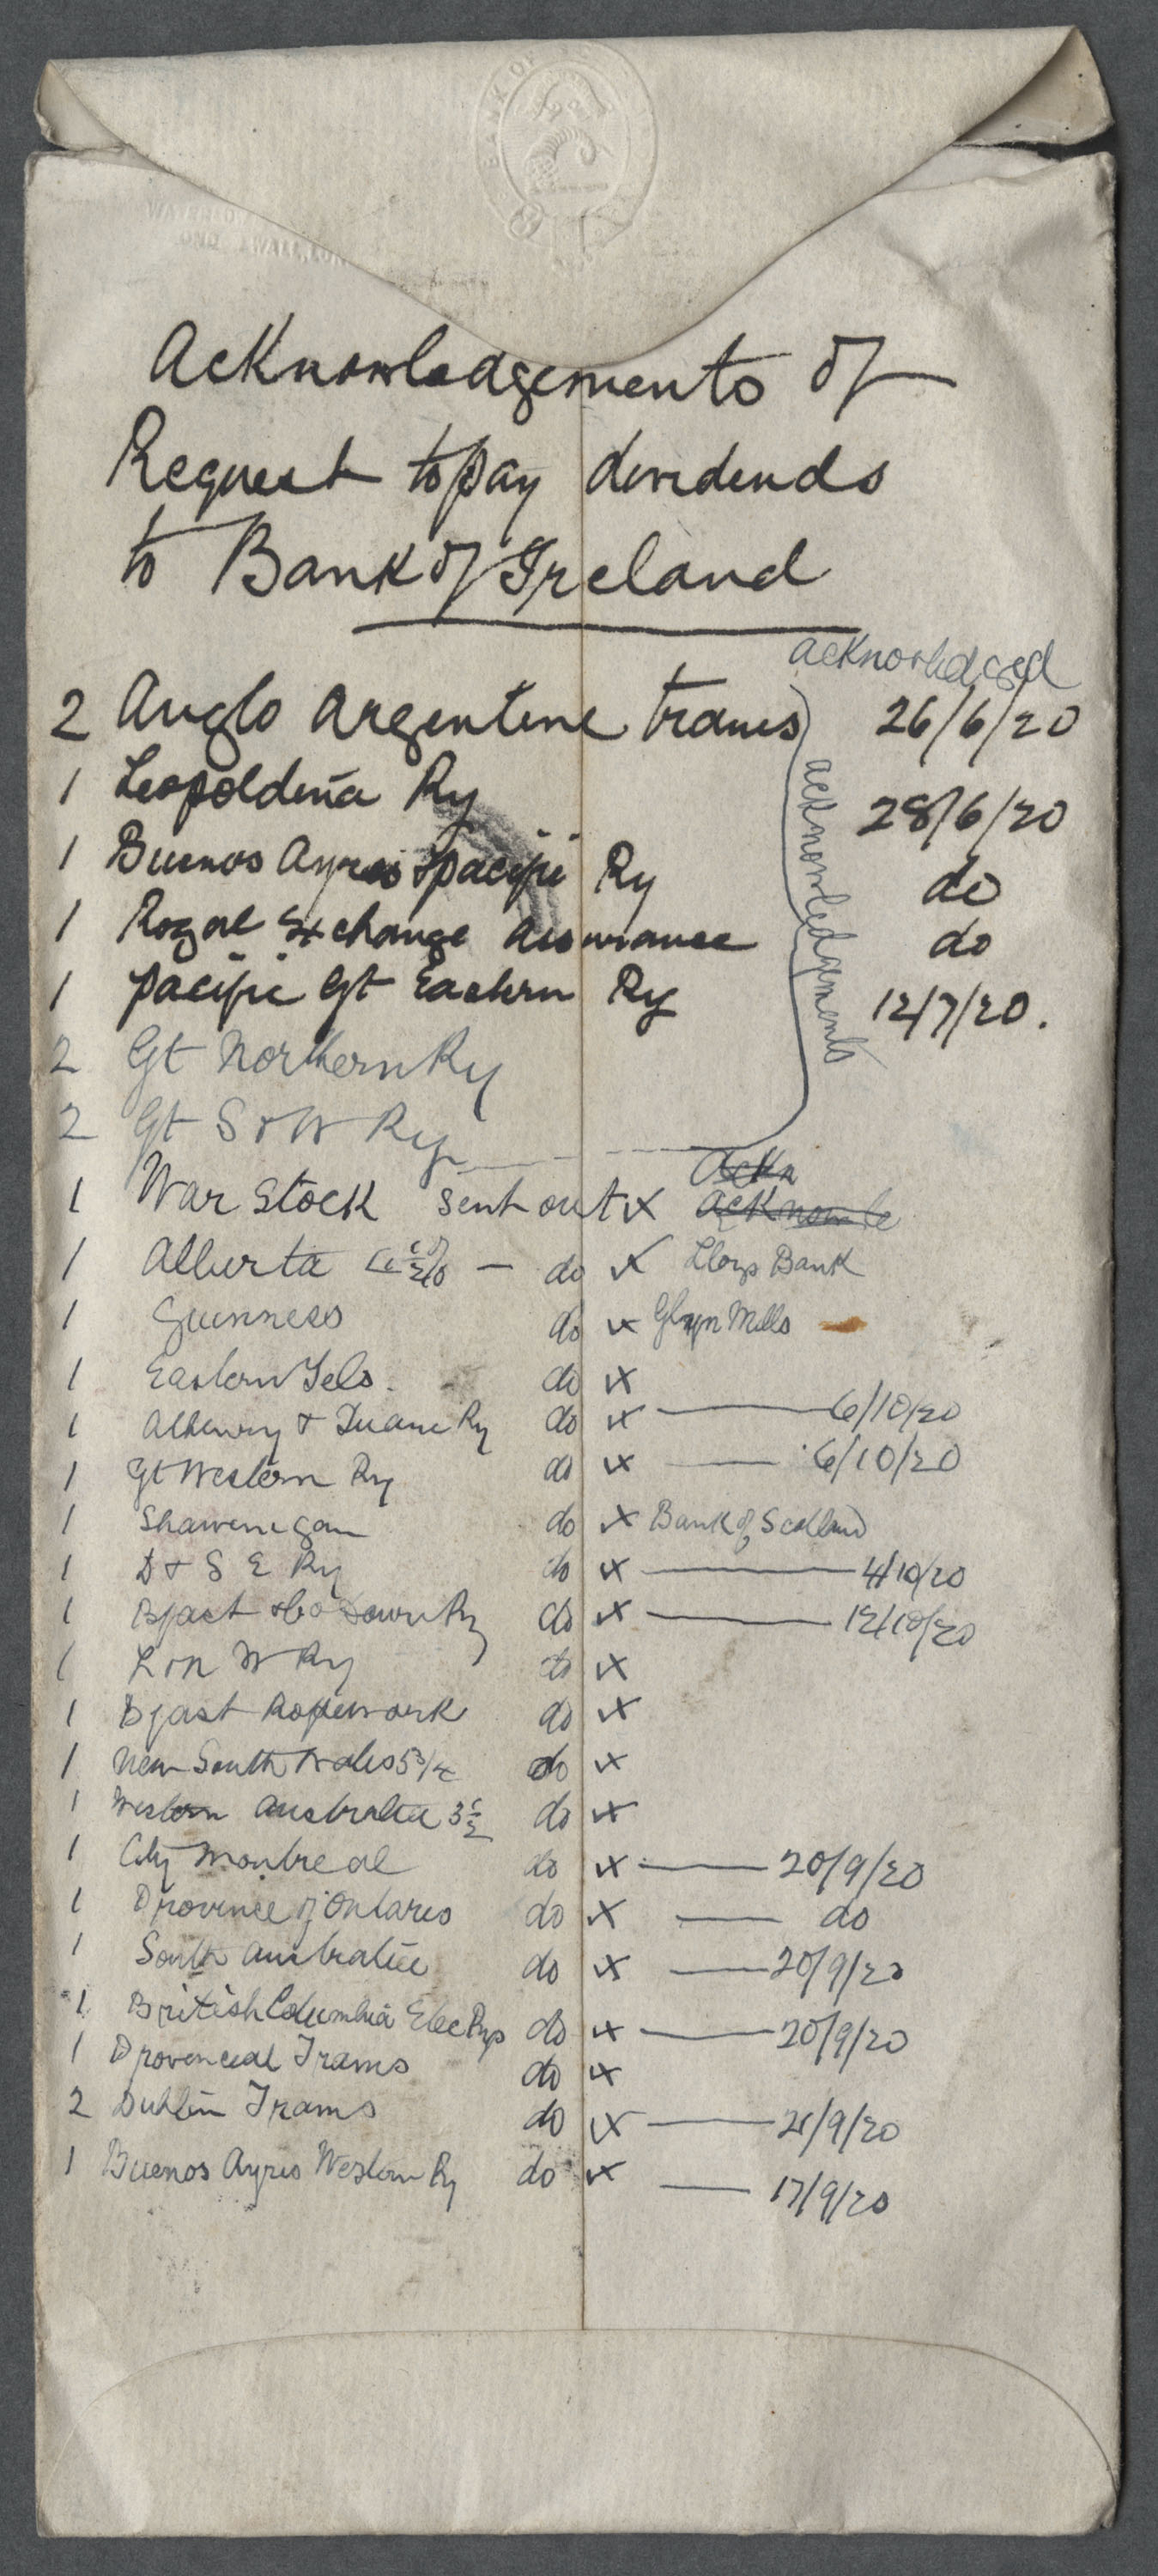 BANK OF
WATERLOO
LOND WALL, LON
Acknowledgements of
Request to pay dividends
to Bank of Ireland
acknowledged
2 Anglo Argentine Trams 26/6/20
acknowledgements
1 Leopoldina Ry 28/6/20
1 Buenos Ayres & pacific Ry do
1 Royal Exchange Assurance do
1 pacific Gt Eastern Ry 12/7/20.
2 Gt Northern Ry
2 Gt S & W Ry
Ackn
1 War Stock sent out x Acknowle
1 Alberta do x Lloyds Bank
1 Guinness do x Glyn Mills
1 Eastern Tels. do x
1 Athenry & Tuam Ry do x 6/10/20
1 Gt Western Ry do x 6/10/20
1 Shawenegan do x Bank of Scotland
1 D & S E Ry do x 4/10/20
1 Bfast & Co Down Ry do x 12/10/20
1 L & N W Ry do x
1 Bfast Ropework do x
1 New South Wales 5 3/4 do x
1 Western Australia 3 1/2 do x
1 City Montreal do x 20/9/20
1 Province of Ontario do x do
1 South Australia do x 20/9/20
1 British Columbia Elec Rys do x 20/9/20
1 Provincial Trams do x
2 Dublin Trams do x 21/9/20
1 Buenos Ayres Western Ry do x 17/9/20